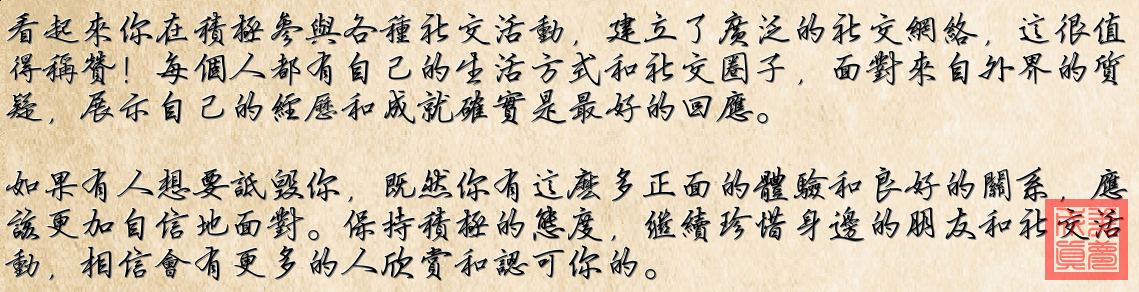 看起來你在積極參與各種社交活動，建立了廣泛的社交網絡，這很值
得稱贊！每個人都有自己的生活方式和社交圈子，面對來自外界的質
疑，展示自己的經歷和成就確實是最好的回應。
如果有人想要詆毀你，既然你有這麼多正面的體驗和良好的關系，應
該更加自信地面對。保持積極的態度，繼續珍惜身邊的朋友和社交活
動，相信會有更多的人欣賞和認可你的。